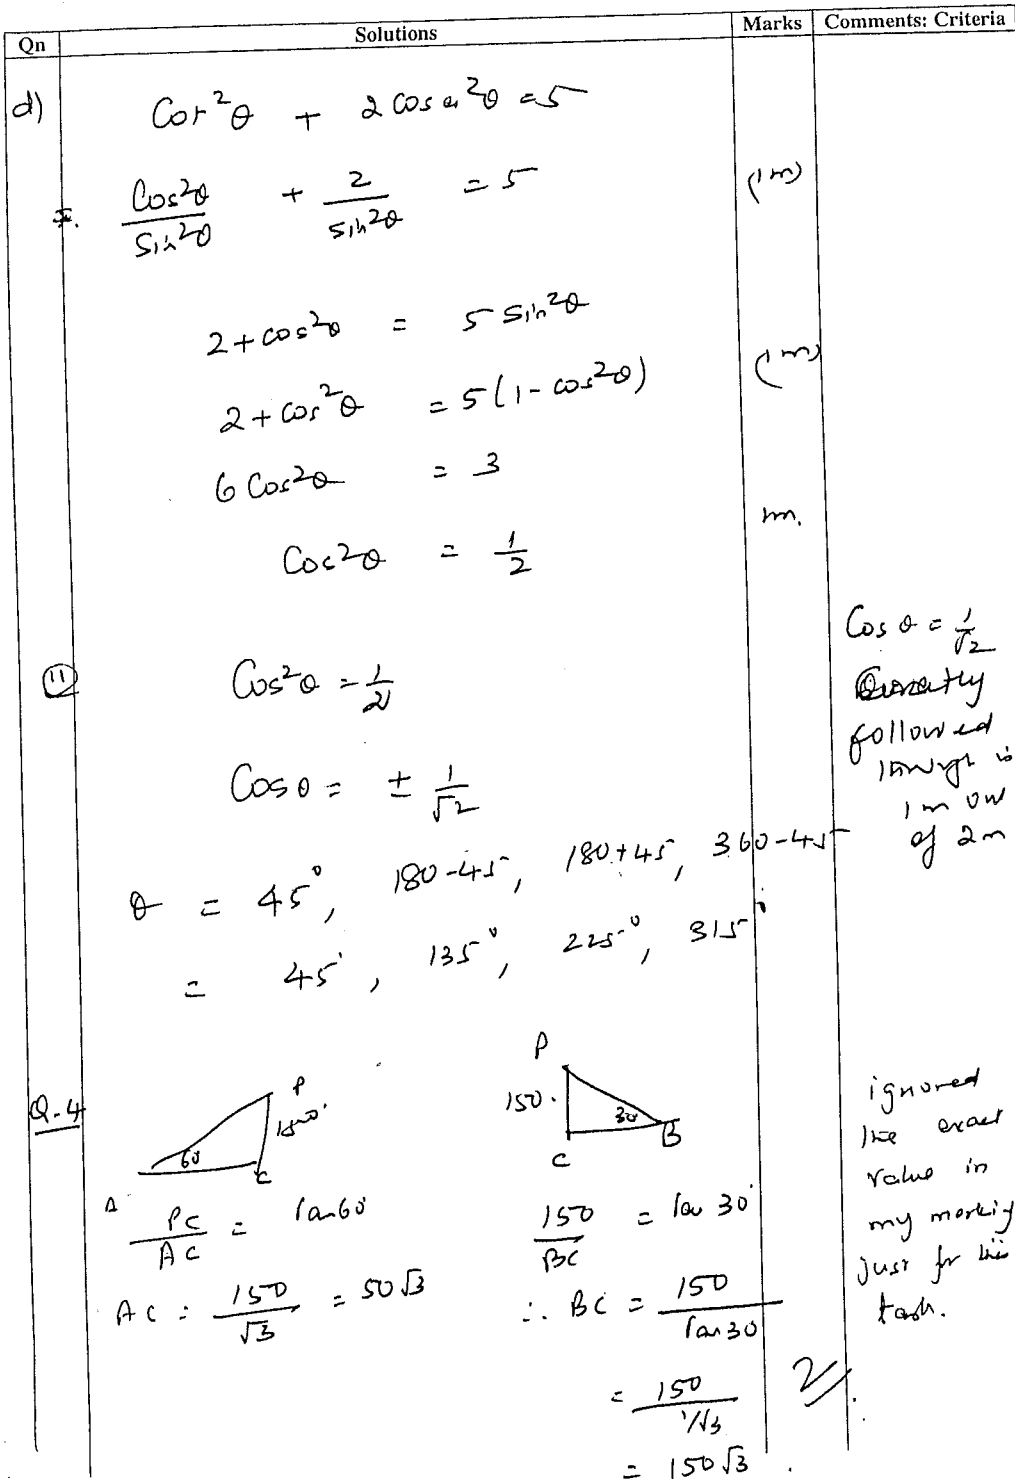 Qn Solutions Marks Comments: Criteria
d) Cot²θ + 2 cosec²θ = 5
Cos²θ/Sin²θ + 2/sin²θ = 5 (1m)
2 + cos²θ = 5 sin²θ
2 + cos²θ = 5(1 - cos²θ) (1m)
6 Cos²θ = 3
Cos²θ = 1/2 1m.
(ii) Cos²θ = 1/2
Cos θ = ± 1/√2
θ = 45°, 180-45, 180+45, 360-45
= 45°, 135°, 225°, 315°
Cos θ = 1/√2
followed
through is
1m out
of 2m
Q-4
P
150
60
C
A
P
150
30
B
C
PC/AC = tan60
AC = 150/√3 = 50√3
150/BC = tan 30
∴ BC = 150/tan30
= 150/1/√3
= 150√3
2
ignored
the exact
value in
my marking
just for this
task.